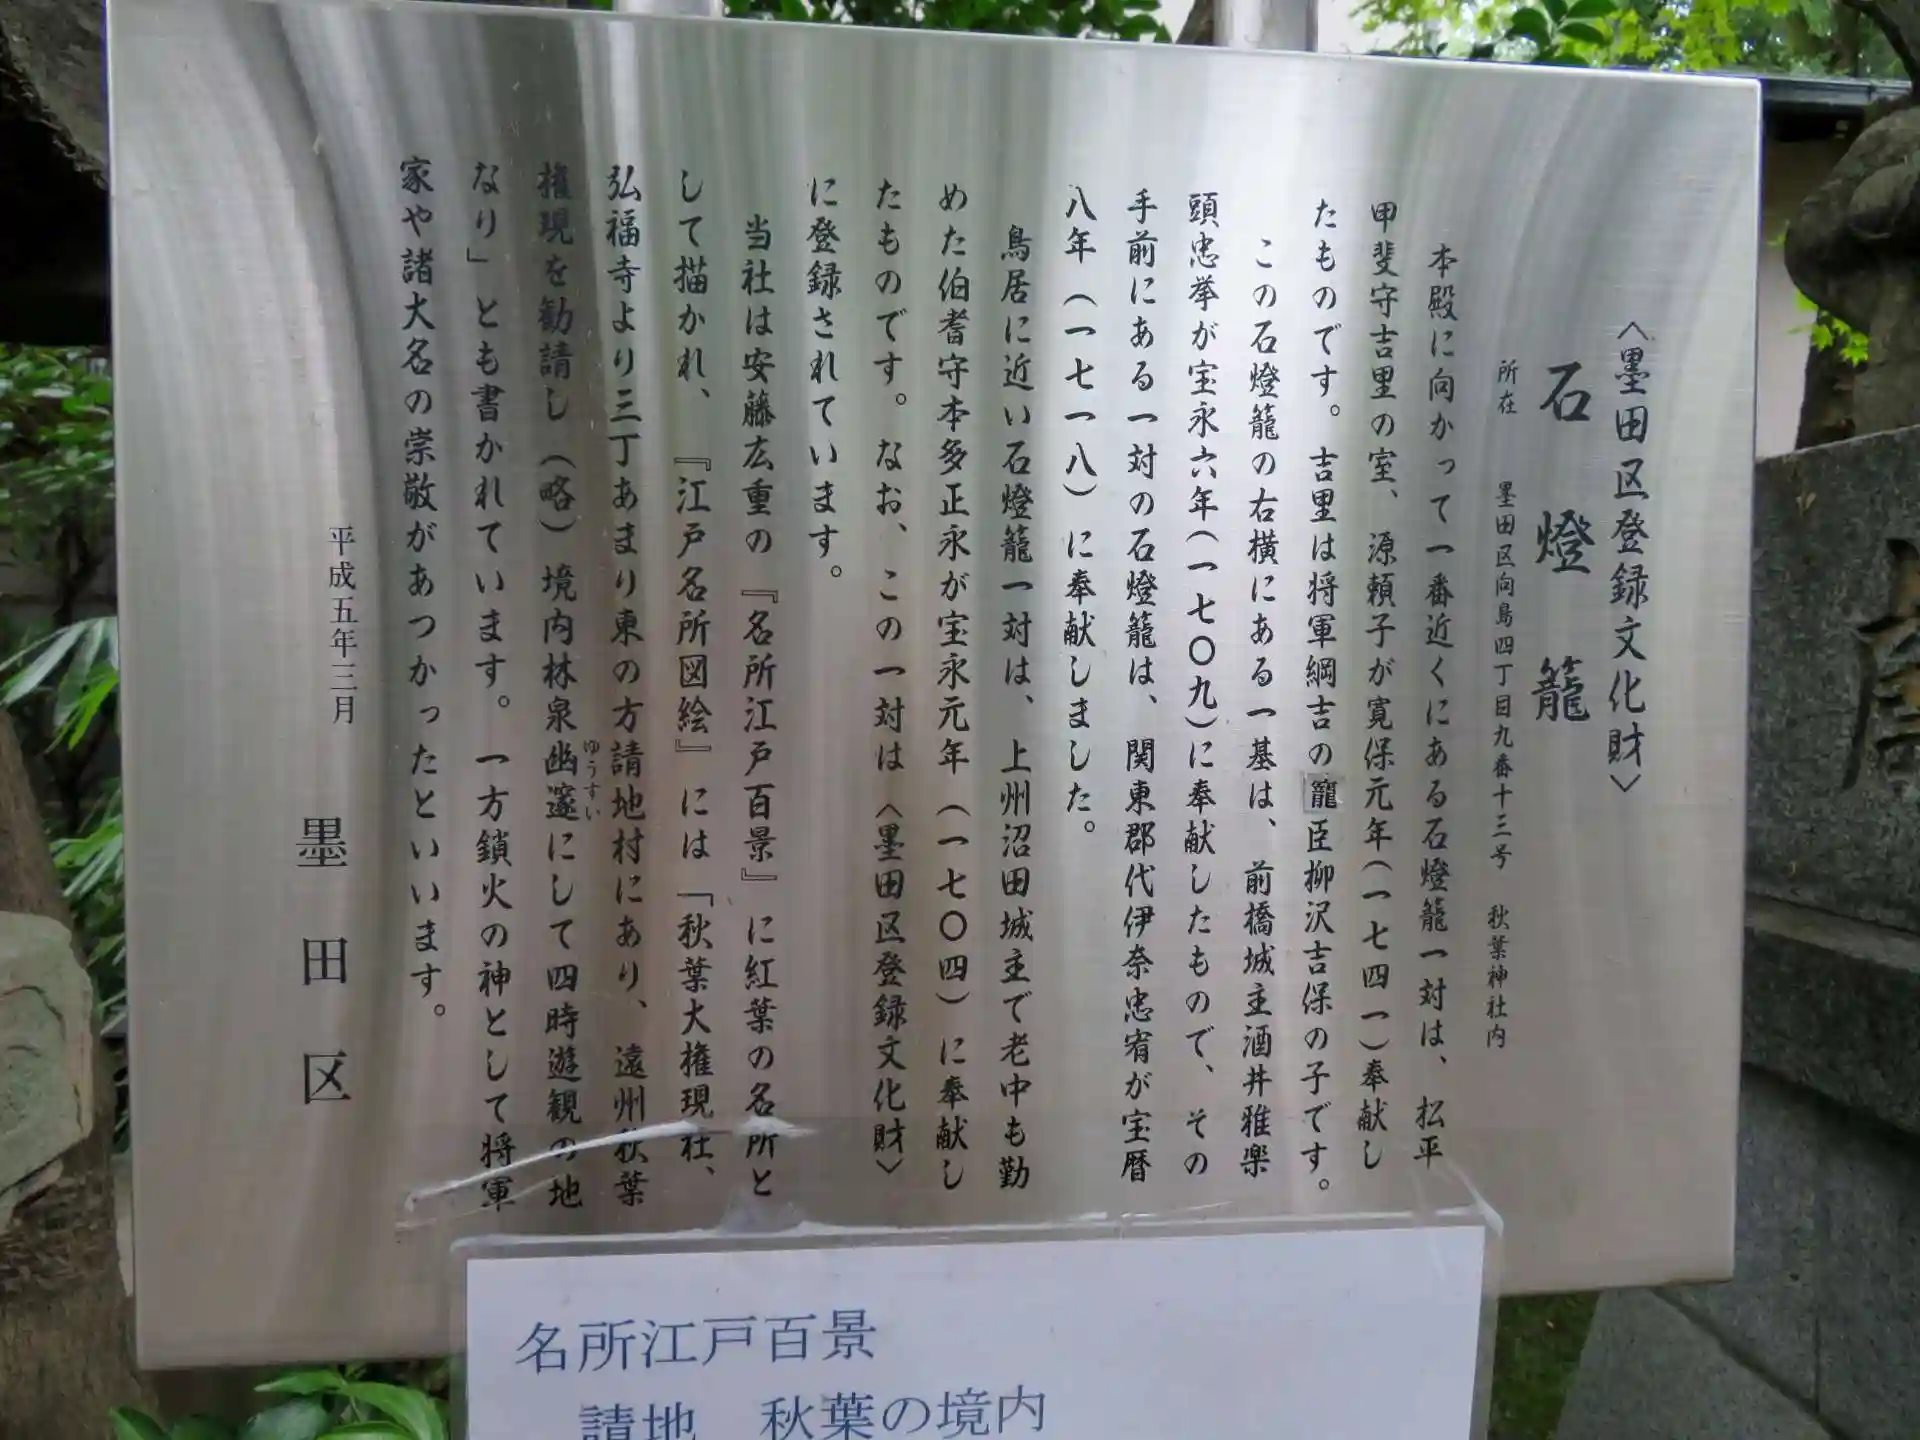 〈墨田区登録文化財〉
石燈籠
所在 墨田区向島四丁目九番十三号 秋葉神社内
本殿に向かって一番近くにある石燈籠一対は、松平
甲斐守吉里の室、源頼子が寛保元年(一七四一)奉献し
たものです。吉里は将軍綱吉の寵臣柳沢吉保の子です。
この石燈籠の右横にある一基は、前橋城主酒井雅楽
頭忠挙が宝永六年(一七〇九)に奉献したもので、その
手前にある一対の石燈籠は、関東郡代伊奈忠宥が宝暦
八年(一七一八)に奉献しました。
鳥居に近い石燈籠一対は、上州沼田城主で老中も勤
めた伯耆守本多正永が宝永元年(一七〇四)に奉献し
たものです。なお、この一対は〈墨田区登録文化財〉
に登録されています。
当社は安藤広重の『名所江戸百景』に紅葉の名所と
して描かれ、『江戸名所図絵』には「秋葉大権現社、
弘福寺より三丁あまり東の方請地村にあり、遠州秋葉
権現を勧請し(略)境内林泉幽邃にして四時遊観の地
ゆうすい
なり」とも書かれています。一方鎖火の神として将軍
家や諸大名の崇敬があつかったといいます。
平成五年三月
墨田区
名所江戸百景
請地 秋葉の境内